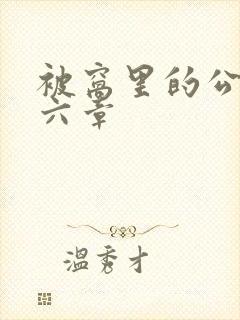 被窝里的公
六章
温秀才